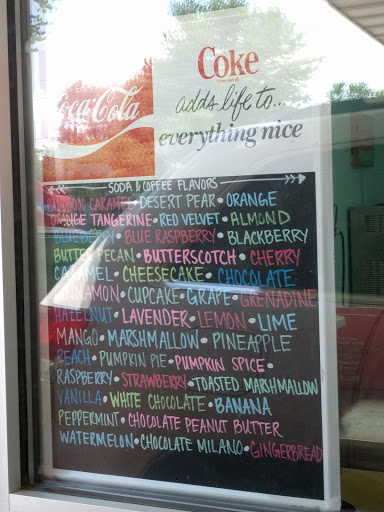 Coca-Cola
Coke
adds life to...
everything nice
SODA & COFFEE FLAVORS
BOURBON CARAMEL • DESERT PEAR • ORANGE
ORANGE TANGERINE • RED VELVET • ALMOND
BLUEBERRY • BLUE RASPBERRY • BLACKBERRY
BUTTER PECAN • BUTTERSCOTCH • CHERRY
CARAMEL • CHEESECAKE • CHOCOLATE
CINNAMON • CUPCAKE • GRAPE • GRENADINE
HAZELNUT • LAVENDER • LEMON • LIME
MANGO • MARSHMALLOW • PINEAPPLE
PEACH • PUMPKIN PIE • PUMPKIN SPICE •
RASPBERRY • STRAWBERRY • TOASTED MARSHMALLOW
VANILLA • WHITE CHOCOLATE • BANANA
PEPPERMINT • CHOCOLATE PEANUT BUTTER
WATERMELON • CHOCOLATE MILANO • GINGERBREAD